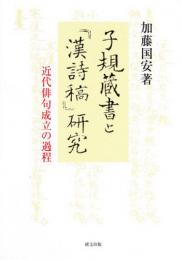 加藤国安著
子規蔵書と
『漢詩稿』研究
近代俳句成立の過程
研文出版